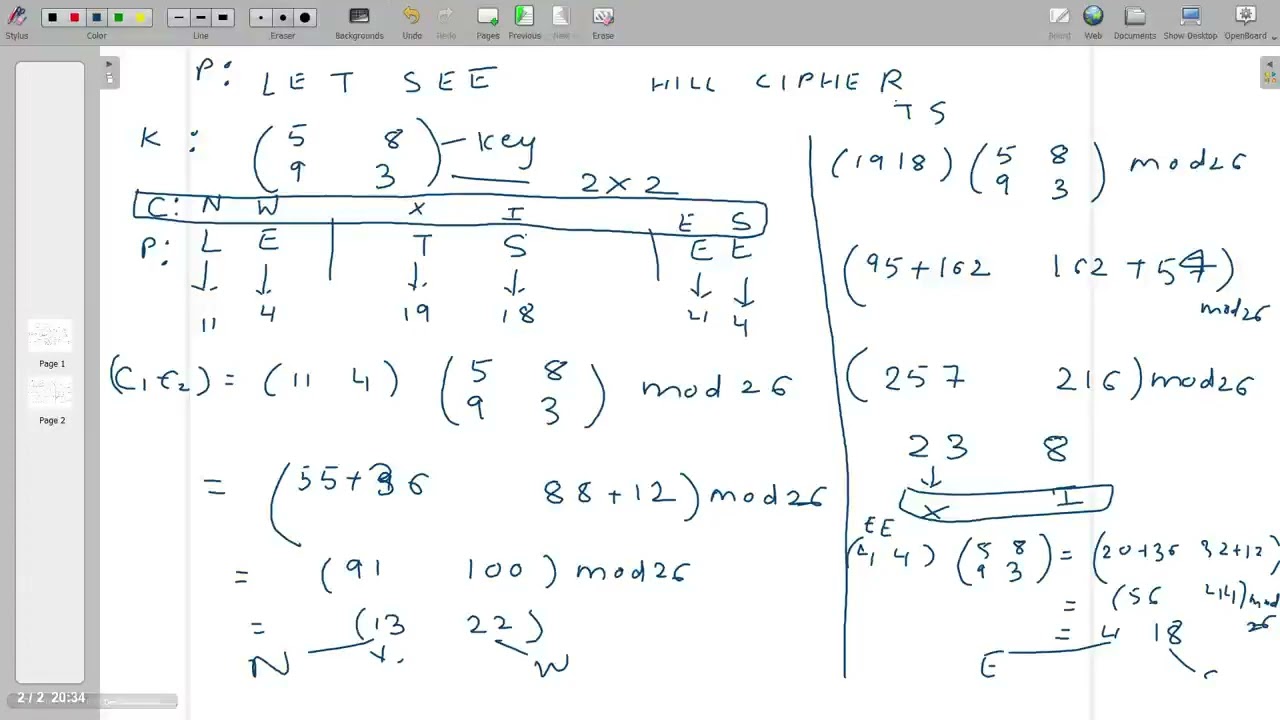 Stylus
Color
Line
Eraser
Backgrounds
Undo
Redo
Pages
Previous
Next
Erase
Board
Web
Documents
Show Desktop
OpenBoard
P: LET SEE
HILL CIPHER
K: (5 8
9 3) - Key
2x2
C: N W X I E S
P: L E | T S | E E
11 4 19 18 4 4
(C1 C2) = (11 4) (5 8
9 3) mod 26
= (55+36 88+12) mod 26
= (91 100) mod 26
= (13 22)
N W
T S
(19 18) (5 8
9 3) mod 26
(95+162 162+54) mod 26
(257 216) mod 26
23 8
X I
E E
(4 4) (5 8
9 3) = (20+36 32+12)
= (56 44) mod 26
= 4 18
E
Page 1
Page 2
2 / 2 20:34